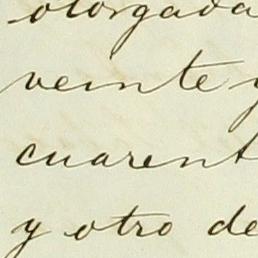 otorgada
veinte y
cuarent
y otro de